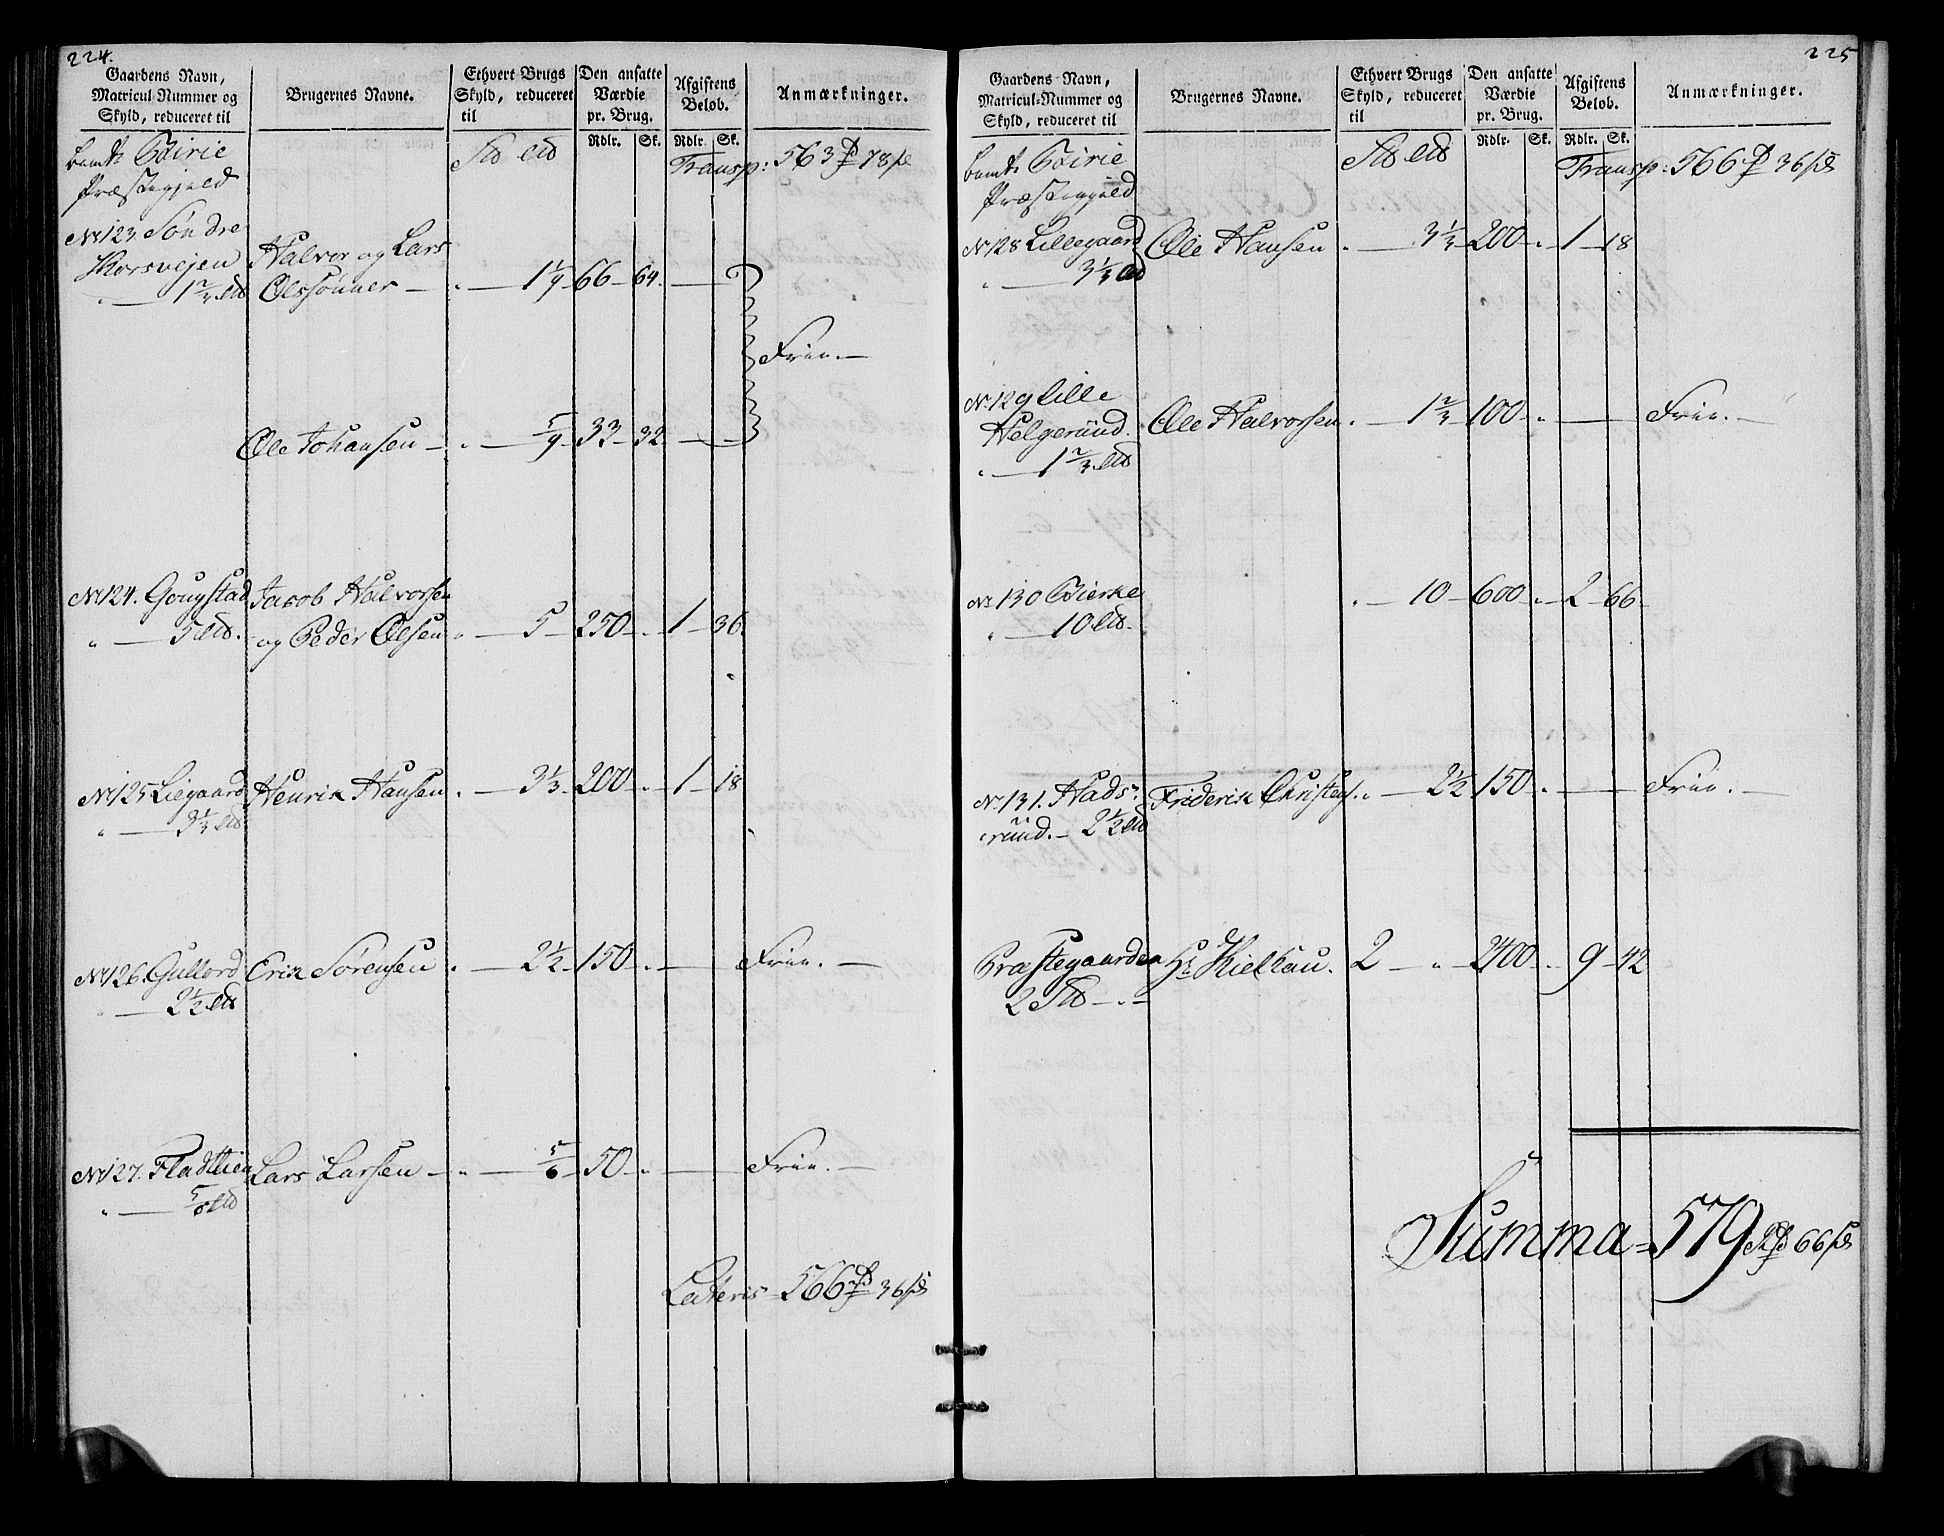 224.
Gaardens Navn,
Matricul-Nummer og
Skyld, reduceret til
Brugernes Navne.
Ethvert Brugs
Skyld, reduceret
til
Den ansatte
Værdie
pr. Brug.
Rdlr. Sk.
Afgiftens
Beløb.
Rdlr. Sk.
Anmærkninger.
Birie
Præstegjeld
Transp: 563 78
No 123 Søndre
Korsvejen
1 2/3
Halvor og Lars
Olssønner — 1 1/9 66 64
Friie.
Ole Johansen — 5/9 33 32
No 124. Gougstad Jacob Halvorsen
5 og Peder Olsen 5 250 1 36
No 125 Liegaard Henrik Hansen 3 1/3 200 1 18
3 1/3
No 126. Gullord Erik Sørensen 2 1/2 150 Friie.
2 1/2
No 127. Fladtlien Lars Larsen 5/6 50 Friie.
5/6
Lateris 566 36
225
Gaardens Navn,
Matricul-Nummer og
Skyld, reduceret til
Brugernes Navne.
Ethvert Brugs
Skyld, reduceret
til
Den ansatte
Værdie
pr. Brug.
Rdlr. Sk.
Afgiftens
Beløb.
Rdlr. Sk.
Anmærkninger.
Birie
Præstegjeld
Transp: 566 36
No 128 Lillegaard Ole Hansen 3 1/3 200 1 18
3 1/3
No 129 Lille
Helgerund. Ole Halvorsen 1 2/3 100 Friie.
1 2/3
No 130 Bierke 10 600 2 66
10
No 131. Hads-
rund. 2 1/2
Friderik Christens. 2 1/2 150 Friie.
Præstegaarden Hr Kielkau. 2 2400 9 42
2
Summa = 579 66